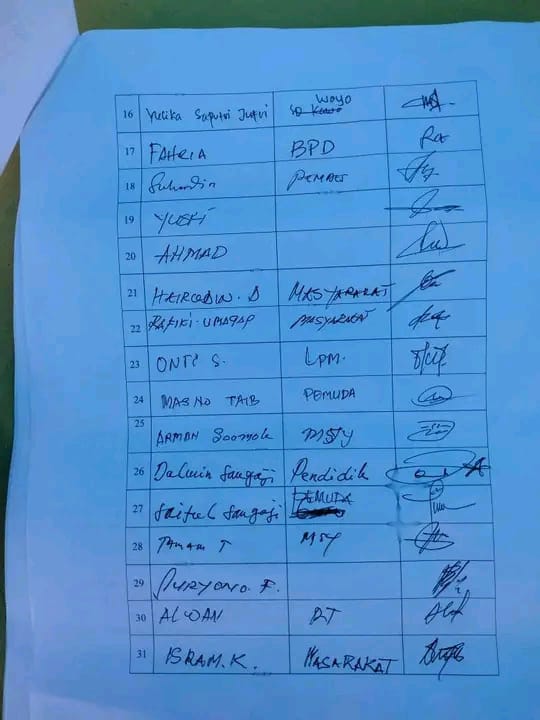 16 Yulika Saputri Jufri Woyo
17 FAHRIA BPD
18 Suhardin
19 YUSRI
20 AHMAD
21 HAIRUDIN. D MASYARAKAT
22 RAFIKI. UMAGAP MASYARAKAT
23 ONTI S. LPM.
24 MASNO TAIB PEMUDA
25 ARMAN Soamole MSY
26 Dalwin Sangaji Pendidik
27 Saiful Sangaji PEMUDA
28 TAMAM T MSY
29 SURYONO. F.
30 ALWAN RT
31 ISRAM. K. MASARAKAT